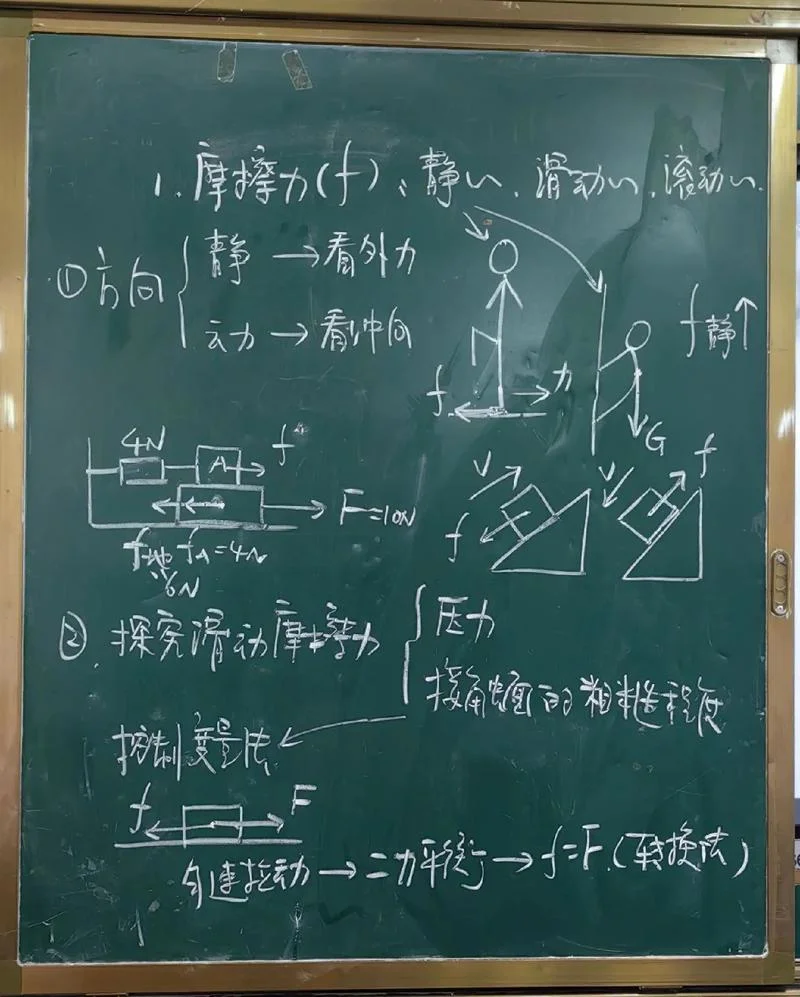 1. 摩擦力(f)、静〃、滑动〃、滚动〃.
①方向
静 → 看外力
动 → 看冲向
f静↑
f
力
G
4N
A
f
F=10N
f地 fA=4N
6N
V
f
V
f
②. 探究滑动摩擦力
压力
接触面的粗糙程度
控制变量法
f
F
匀速拉动 → 二力平衡 → f=F.(转换法)